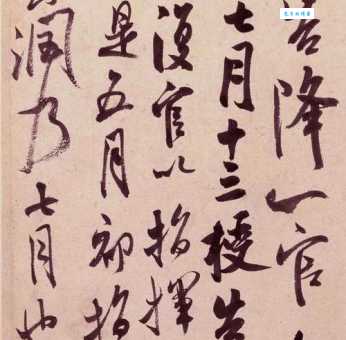 降一官
七月十三授告
復官以指揮
是五月初指
潤乃七月也